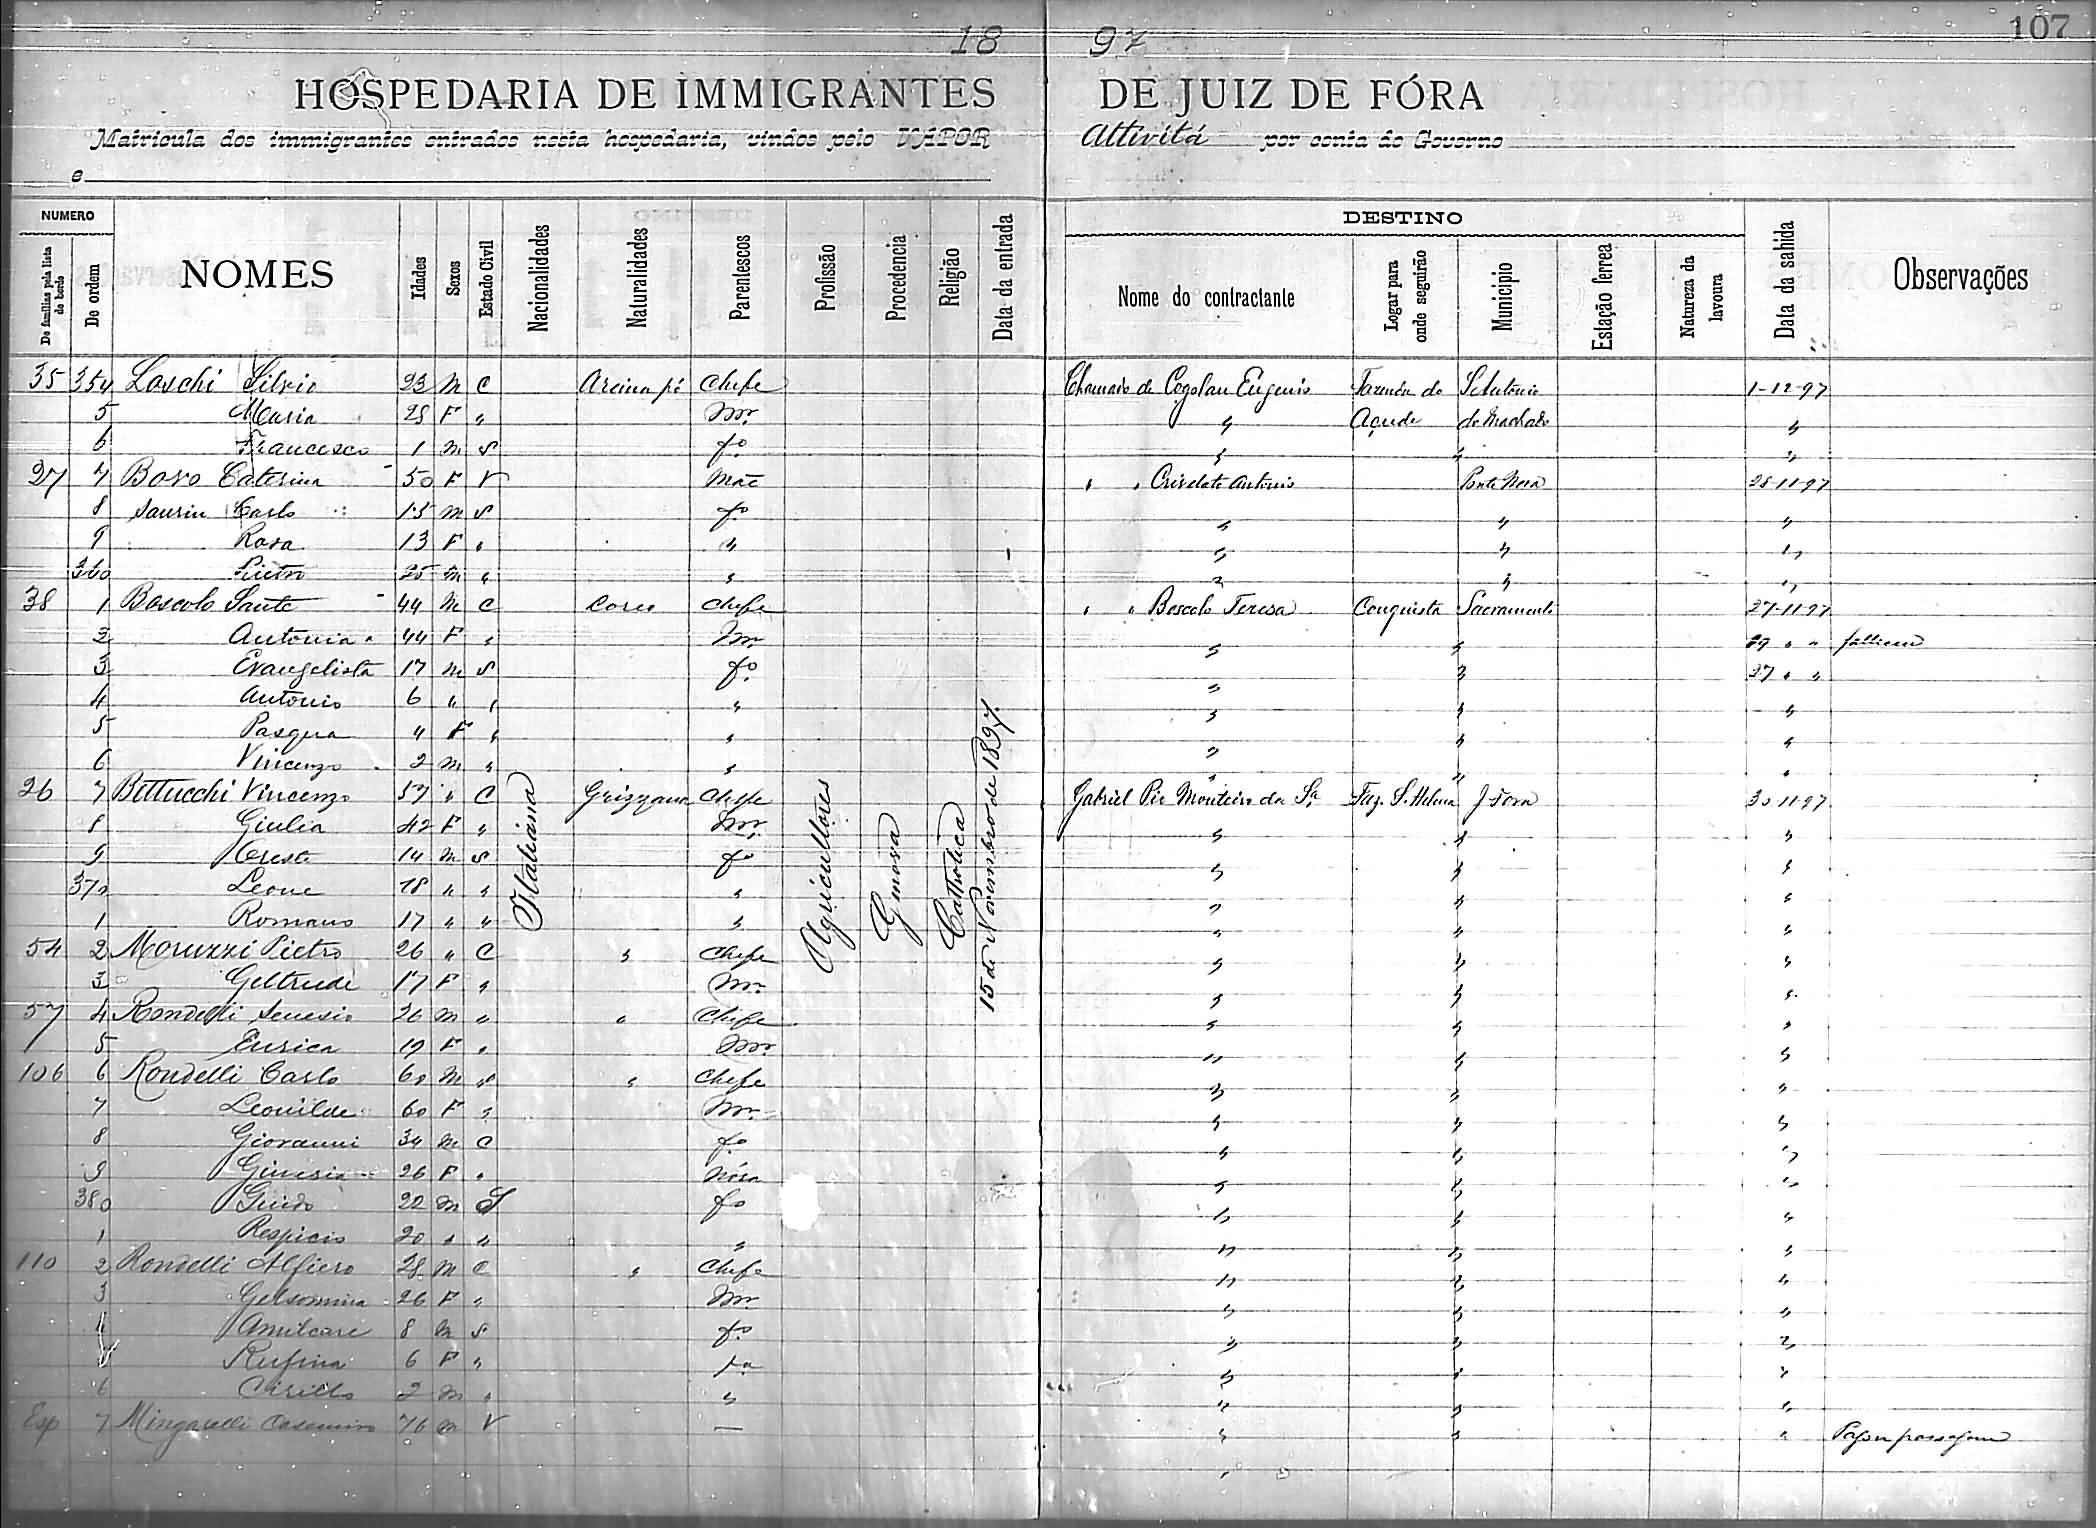 107
18 97
HOSPEDARIA DE IMMIGRANTES DE JUIZ DE FÓRA
Matricula dos immigrantes entrados nesta hospedaria, vindos pelo VAPOR Attivitá por conta do Governo
e
NUMERO DESTINO
De familias pela lista de bordo De ordem NOMES Idades Sexos Estado Civil Nacionalidades Naturalidades Parentescos Profissão Procedencia Religião Data da entrada Nome do contractante Logar para onde seguirão Municipio Estação ferrea Natureza da lavoura Data da sahida Observações
35 354 Loschi Silvio 23 M C Chefe Chamado de Cogolan Eugenio Fazenda do S. Antonio 1-12-97
5 Maria 28 F " Mr. " Açude do Machado "
6 Francesco 1 M S fo " " "
27 7 Bovo Caterina 50 F V Mãe " " Crivelato Antonio Ponte Nova 28-11-97
8 Saurin Carlo 15 M S fo " " "
9 Rosa 13 F " " " " "
360 Pietro 25 M " " " " "
38 1 Boscolo Sante 44 M C Chefe " " Boscolo Teresa Conquista Sacramento 27-11-97
2 Antonia 44 F " Mr. " " 29 " "
3 Evangelista 17 M S fo " " 27 " "
4 Antonio 6 " " " " " "
5 Pasqua 4 F " " " " "
6 Vincenzo 2 M " " " " "
26 7 Bettucchi Vincenzo 57 " C Grizzana Chefe Gabriel Pio Monteiro da Sa Faz. S. Helena J Fora 30-11-97
8 Giulia 42 F " Mr. " " "
9 Oreste 14 M S fo " " "
370 Leone 18 " " " " " "
1 Romano 17 " " " " " "
54 2 Moruzzi Pietro 26 " C " Chefe " " "
3 Geltrude 17 F " Mr. " " "
57 4 Rondelli Senesio 26 M " " Chefe " " "
5 Enrica 19 F " Mr. " " "
106 6 Rondelli Carlo 60 M " " Chefe " " "
7 Leonilde 60 F " Mr. " " "
8 Giovanni 34 M C fo " " "
9 Ginesia 26 F " Nóra " " "
380 Guido 22 M S fo " " "
1 Respicio 20 " " " " " "
110 2 Rondelli Alfiero 28 M C " Chefe " " "
3 Gelsomina 26 F " Mr " " "
4 Amilcare 8 M S fo " " "
Rufina 6 F " fa " " "
6 Cirillo 2 M " " " " "
Esp 7 Mingarelli Casemiro 76 M V — " " " Pagou passagem
Italiana
Agricultores
Genova
Catholica
15 de Novembro de 1897.